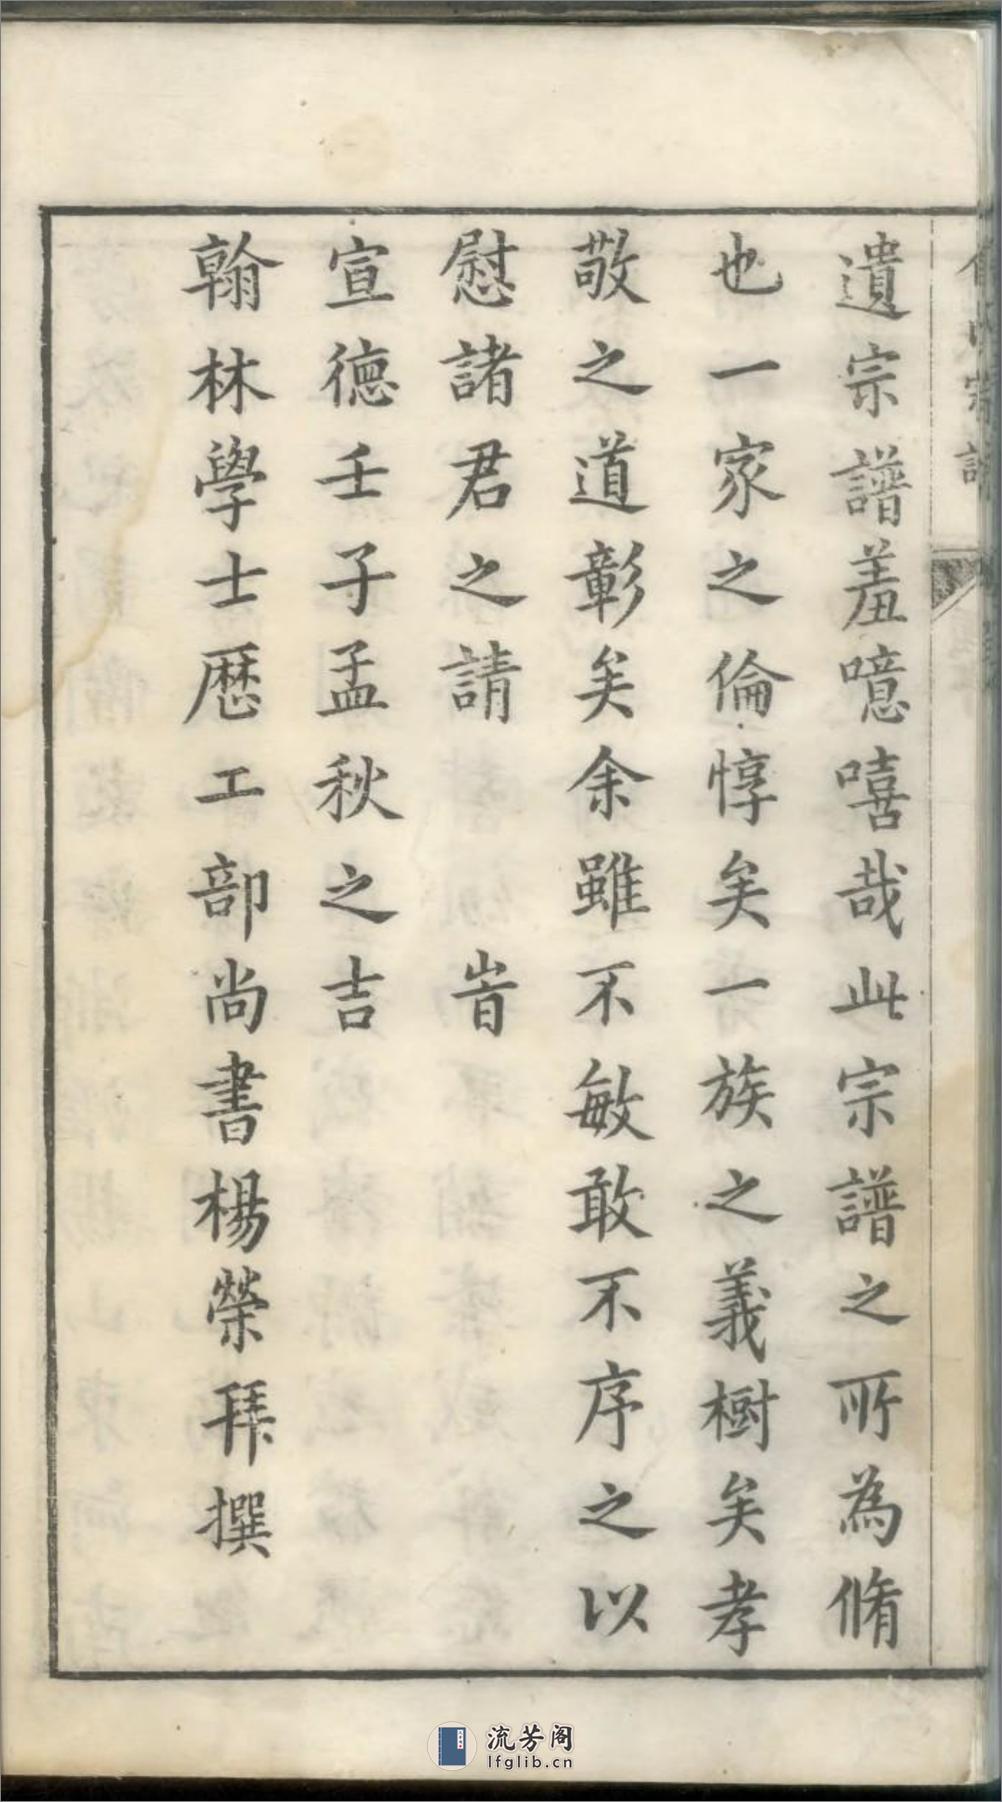 遺宗譜羞噫嘻哉此宗譜之所為脩
也一家之倫惇矣一族之義樹矣孝
敬之道彰矣余雖不敏敢不序之以
慰諸君之請　旹
宣德壬子孟秋之吉
翰林學士歷工部尚書楊榮拜撰
流芳阁
lfglib.cn